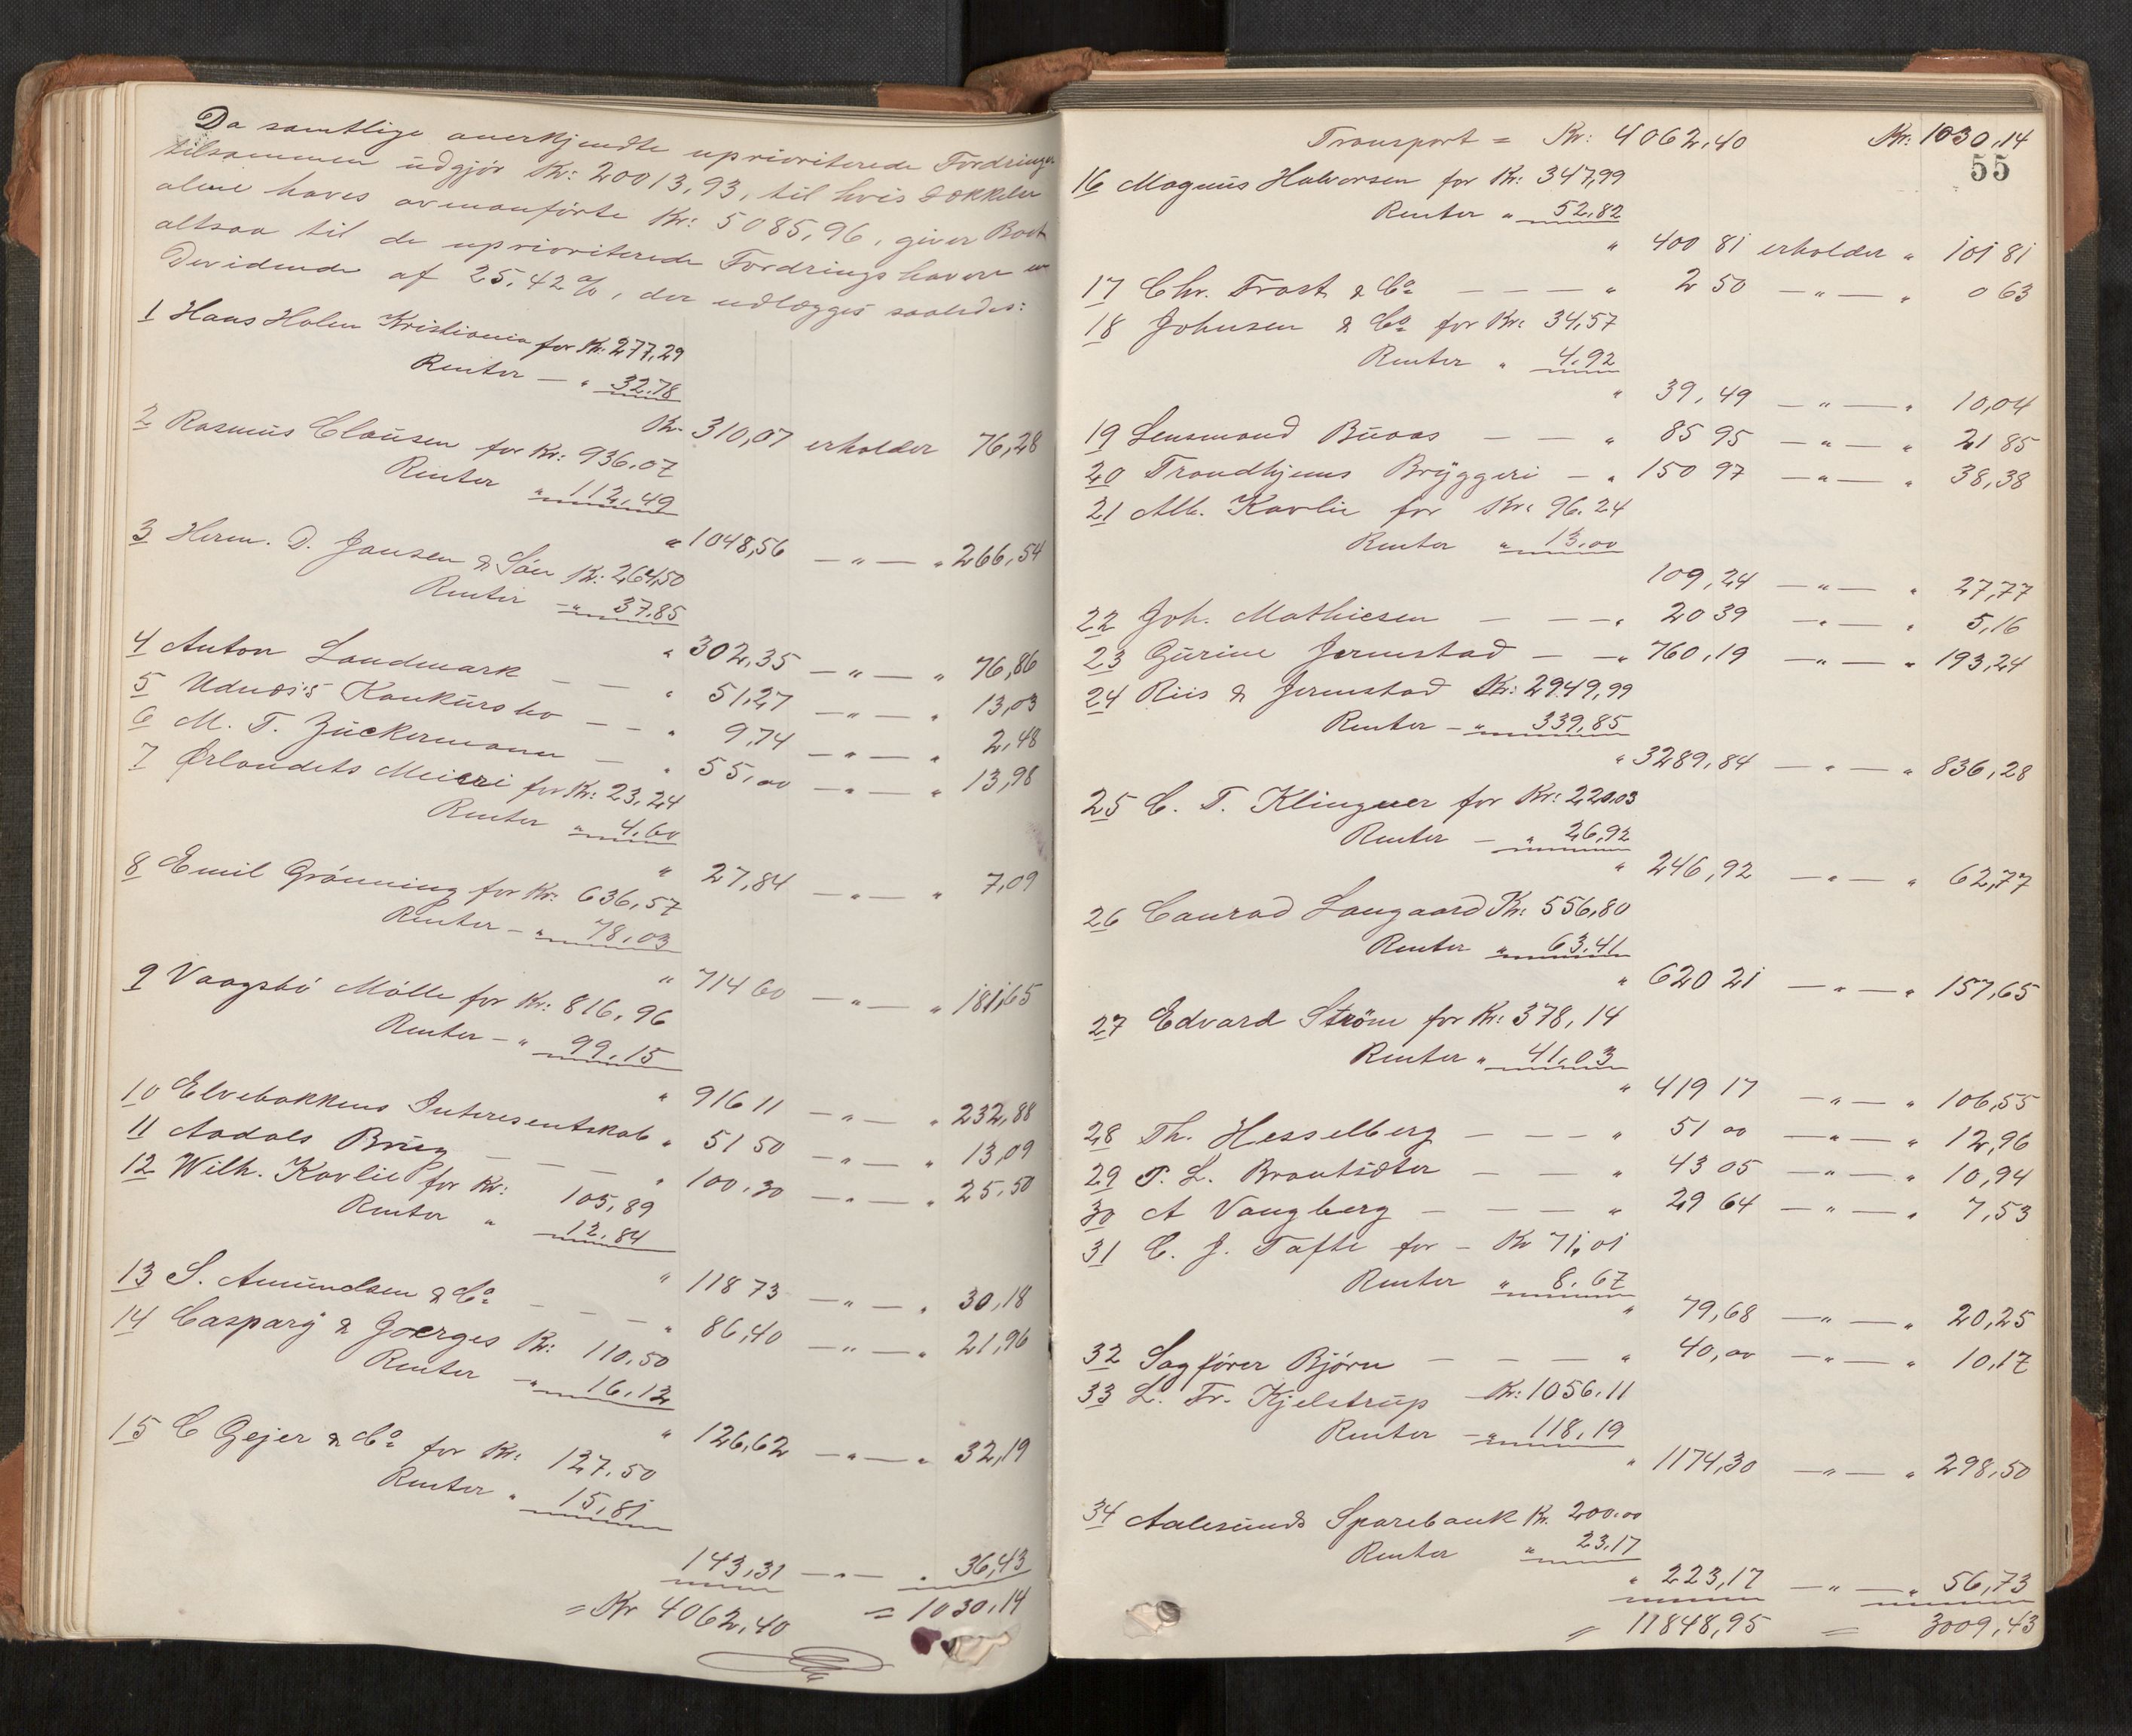 Da samtlige anerkjendte uprioriterede Fordringer
tilsammen udgjør Kr: 20013,93, til hvis Dækkelse
alene haves ovenanførte Kr: 5085,96, giver Boet
altsaa til de uprioriterede Fordringshavere en
Dividende af 25,42 %, der udlægges saaledes:
1 Hans Holm Kristiania for Kr: 277,29
Renter — " 32.78
Kr. 310,07 erholder 76,28
2 Rasmus Clausen for Kr: 936.07
Renter " 112,49
" 1048,56 — " — " 266,54
3 Herm. D. Jansen & Søn Kr: 264,50
Renter — " 37.85
" 302,35 — " — " 76,86
4 Anton Landmark — — " 51,27 — " — " 13,03
5 Udnæs's Konkursbo — — " 9,74 — " — " 2,48
6 M. T. Zuckermann — " 55,00 — " — " 13,98
7 Ørlandets Meieri for Kr: 23,24
Renter " 4,60
" 27,84 — " — " 7,09
8 Emil Grønning for Kr: 636,57
Renter — " 78,03
" 714 60 — " — " 181,65
9 Vaagsbø Mølle for Kr: 816,96
Renter — " 99.15
" 916 11 — " — " 232,88
10 Elvebakkens Interesentskab " 51 50 — " — " 13,09
11 Aadals Brug — — — " 100.30 — " — " 25,50
12 Wilh. Kavlie for Kr: 105,89
Renter " 12.84
" 118 73 — " — " 30,18
13 S. Amundsen & Co — — — " 86,40 — " — " 21,96
14 Caspary & Goerges Kr: 110,50
Renter — " 16.12
" 126,62 — " — " 32,19
15 C Gejer & Co for Kr: 127.50
Renter " 15,81
143,31 — " — " 36,43
= Kr 4062,40 = 1030,14
Transport = Kr: 4062,40 Kr: 1030,14
55
16 Magnus Halvorsen for Kr: 347,99
Renter " 52,82
" 400 81 erholder " 101 81
17 Chr. Trost & Co — — — " 2 50 — " — " 0 63
18 Johnsen & Co for Kr: 34,57
Renter " 4,92
" 39,49 — " — " 10,04
19 Lensmand Buaas — — " 85 95 — " — " 21 85
20 Trondhjems Bryggeri — " 150 97 — " — " 38,38
21 Alb. Kavlie for Kr: 96.24
Renter " 13,00
109,24 — " — " 27,77
22 Joh. Mathiesen — — — " 20 39 — " — " 5,16
23 Gurine Jermstad — — " 760,19 — " — " 193,24
24 Riis & Jermstad Kr: 2949,99
Renter — " 339,85
" 3289,84 — " — " 836,28
25 C. T. Klinguer for Kr: 220.03
Renter — " 26,92
" 246,92 — " — " 62,77
26 Conrad Langaard Kr: 556,80
Renter " 63,41
" 620 21 — " — " 157,65
27 Edvard Strøm for Kr: 378,14
Renter " 41,03
" 419 17 — " — " 106,55
28 Th. Hesselberg — — — " 51 00 — " — " 12,96
29 T. L. Brautsæter — — " 43 05 — " — " 10,94
30 A Vangberg — — — " 29 64 — " — " 7,53
31 C. J. Tafte for — Kr 71,01
Renter " 8.67
" 79,68 — " — " 20,25
32 Sagfører Bjørn — — — " 40,00 — " — " 10,17
33 L. Fr. Kjelstrup — Kr: 1056.11
Renter — " 118,19
" 1174,30 — " — " 298,50
34 Aalesunds Sparebank Kr. 200.00
Renter " 23,17
" 223,17 — " — " 56,73
= 11848,95 = 3009,43